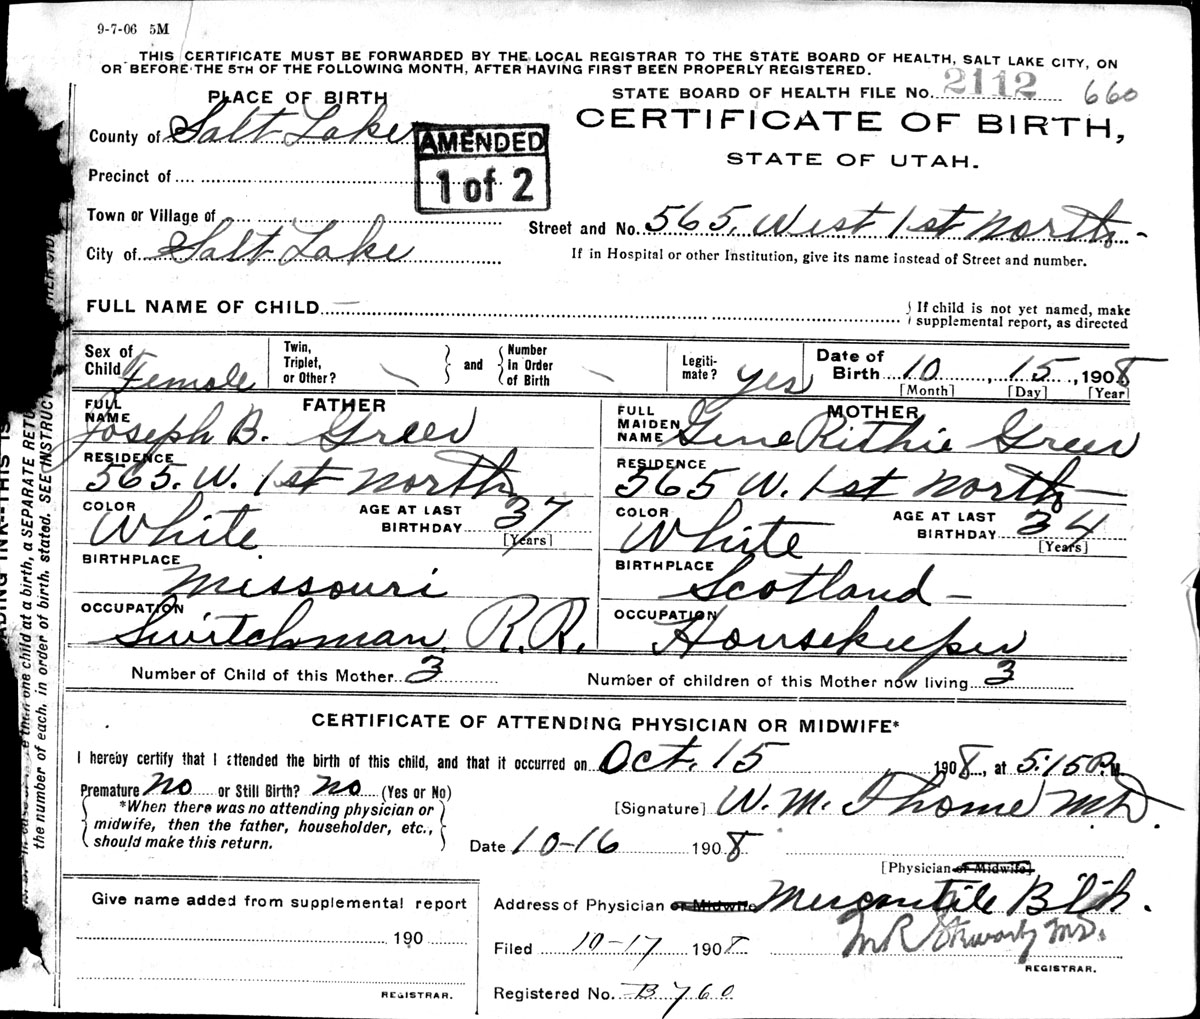 9-7-06 5M
THIS CERTIFICATE MUST BE FORWARDED BY THE LOCAL REGISTRAR TO THE STATE BOARD OF HEALTH, SALT LAKE CITY, ON
OR BEFORE THE 5TH OF THE FOLLOWING MONTH, AFTER HAVING FIRST BEEN PROPERLY REGISTERED.
STATE BOARD OF HEALTH FILE NO. 2112 660
PLACE OF BIRTH
CERTIFICATE OF BIRTH,
STATE OF UTAH.
County of Salt Lake
AMENDED
1 of 2
Precinct of
Town or Village of
Street and No. 565. West 1st North
City of Salt Lake
If in Hospital or other Institution, give its name instead of Street and number.
FULL NAME OF CHILD
If child is not yet named, make
supplemental report, as directed
Sex of Child Female
Twin, Triplet, or Other? and Number in Order of Birth
Legiti-mate? yes
Date of Birth 10, 15, 1908
[Month] [Day] [Year]
FATHER
FULL NAME Joseph B. Greer
RESIDENCE 565. W. 1st North
COLOR White AGE AT LAST BIRTHDAY 37 [Years]
BIRTHPLACE Missouri
OCCUPATION Switchman. R.R.
MOTHER
FULL MAIDEN NAME Gene Rithie Greer
RESIDENCE 565 W. 1st North
COLOR White AGE AT LAST BIRTHDAY 34 [Years]
BIRTHPLACE Scotland
OCCUPATION Housekeeper
Number of Child of this Mother 3 Number of children of this Mother now living 3
CERTIFICATE OF ATTENDING PHYSICIAN OR MIDWIFE*
I hereby certify that I attended the birth of this child, and that it occurred on Oct. 15 1908, at 5:15 P.M.
Premature no or Still Birth? no (Yes or No)
*When there was no attending physician or
midwife, then the father, householder, etc.,
should make this return.
[Signature] W. M. Thome M.D.
Date 10-16 1908
[Physician or Midwife]
Give name added from supplemental report
190
REGISTRAR.
Address of Physician or Midwife Mercantile Blk.
Filed 10-17 1908 M R Stewart M.D.
REGISTRAR.
Registered No. B760
than one child at a birth, a SEPARATE RETU
the number of each, in order of birth, stated. SEE INSTRUC
ADING INK--THIS IS